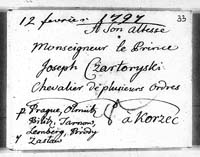 12 fevrier 1797
33
A Son altesse
Monseigneur le Prince
Joseph Czartoryski
Chevalier de plusieurs ordres
p Prague, Olmütz
Bilitz, Tarnow,
Lemberg, Brody
y Zaslaw
à Korzec